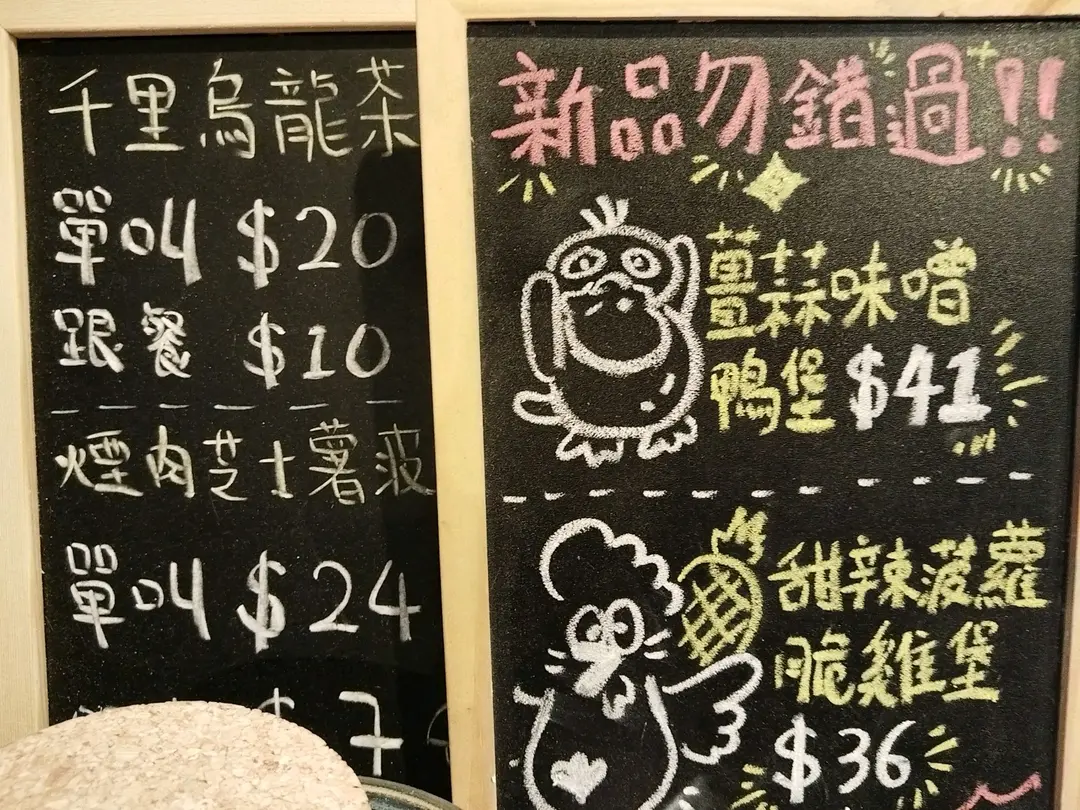 千里烏龍茶
單叫 $20
跟餐 $10
煙肉芝士薯波
單叫 $24
$7
新品勿錯過!!
薑蒜味噌
鴨堡 $41
甜辣菠蘿
脆雞堡
$36